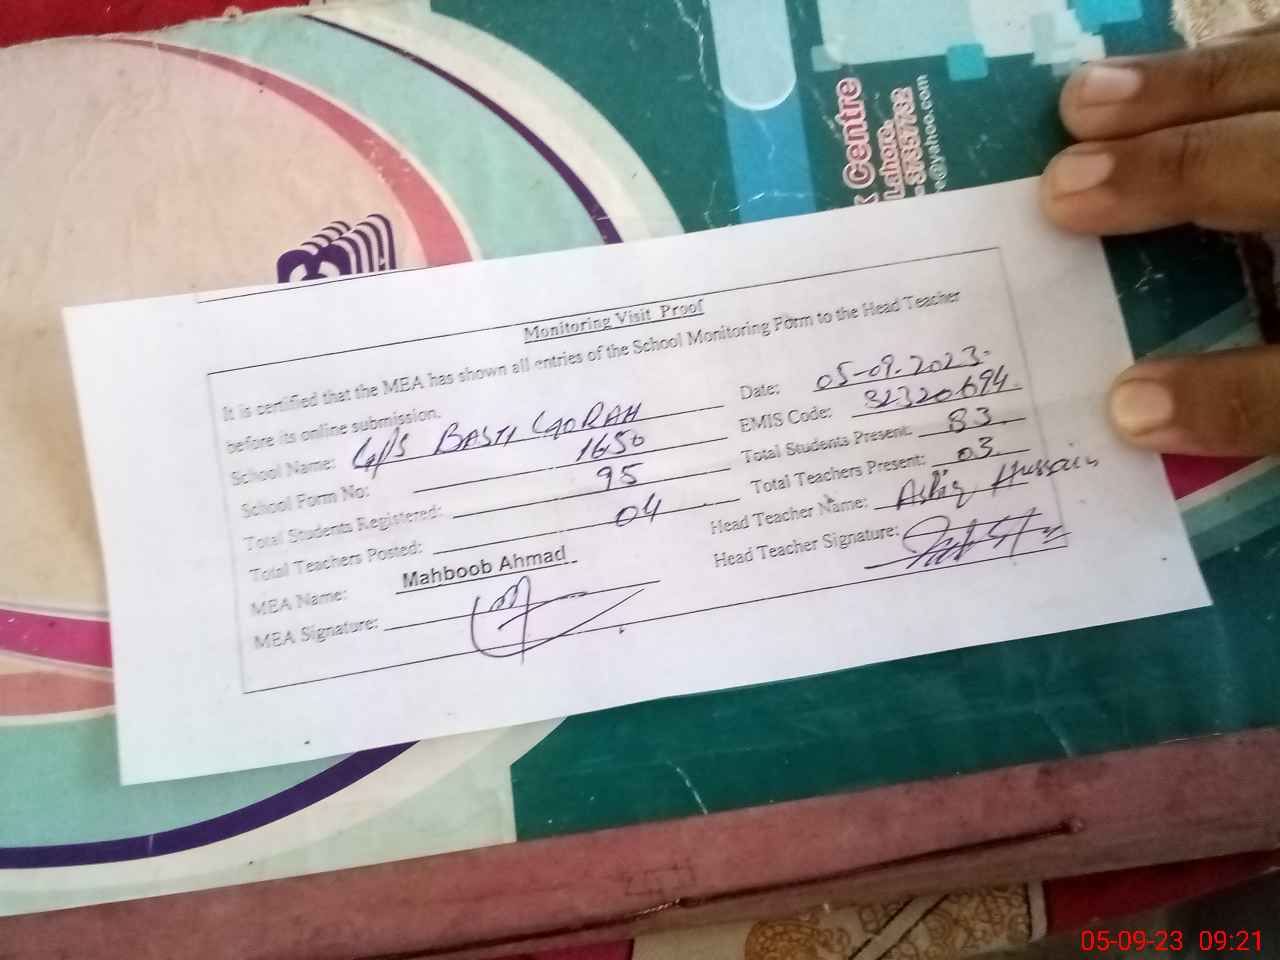 Centre
Lahore.
37357732
@yahoo.com
Monitoring Visit Proof
It is certified that the MEA has shown all entries of the School Monitoring Form to the Head Teacher
before its online submission.
Date: 05-09-2023-
School Name: G/S BASTI GORAH
EMIS Code: 32320694
School Form No: 1650
Total Students Present: 83
Total Students Registered: 95
Total Teachers Present: 03
Total Teachers Posted: 04
Head Teacher Name: Ashiq Hussain
MEA Name: Mahboob Ahmad
Head Teacher Signature:
MEA Signature:
05-09-23 09:21